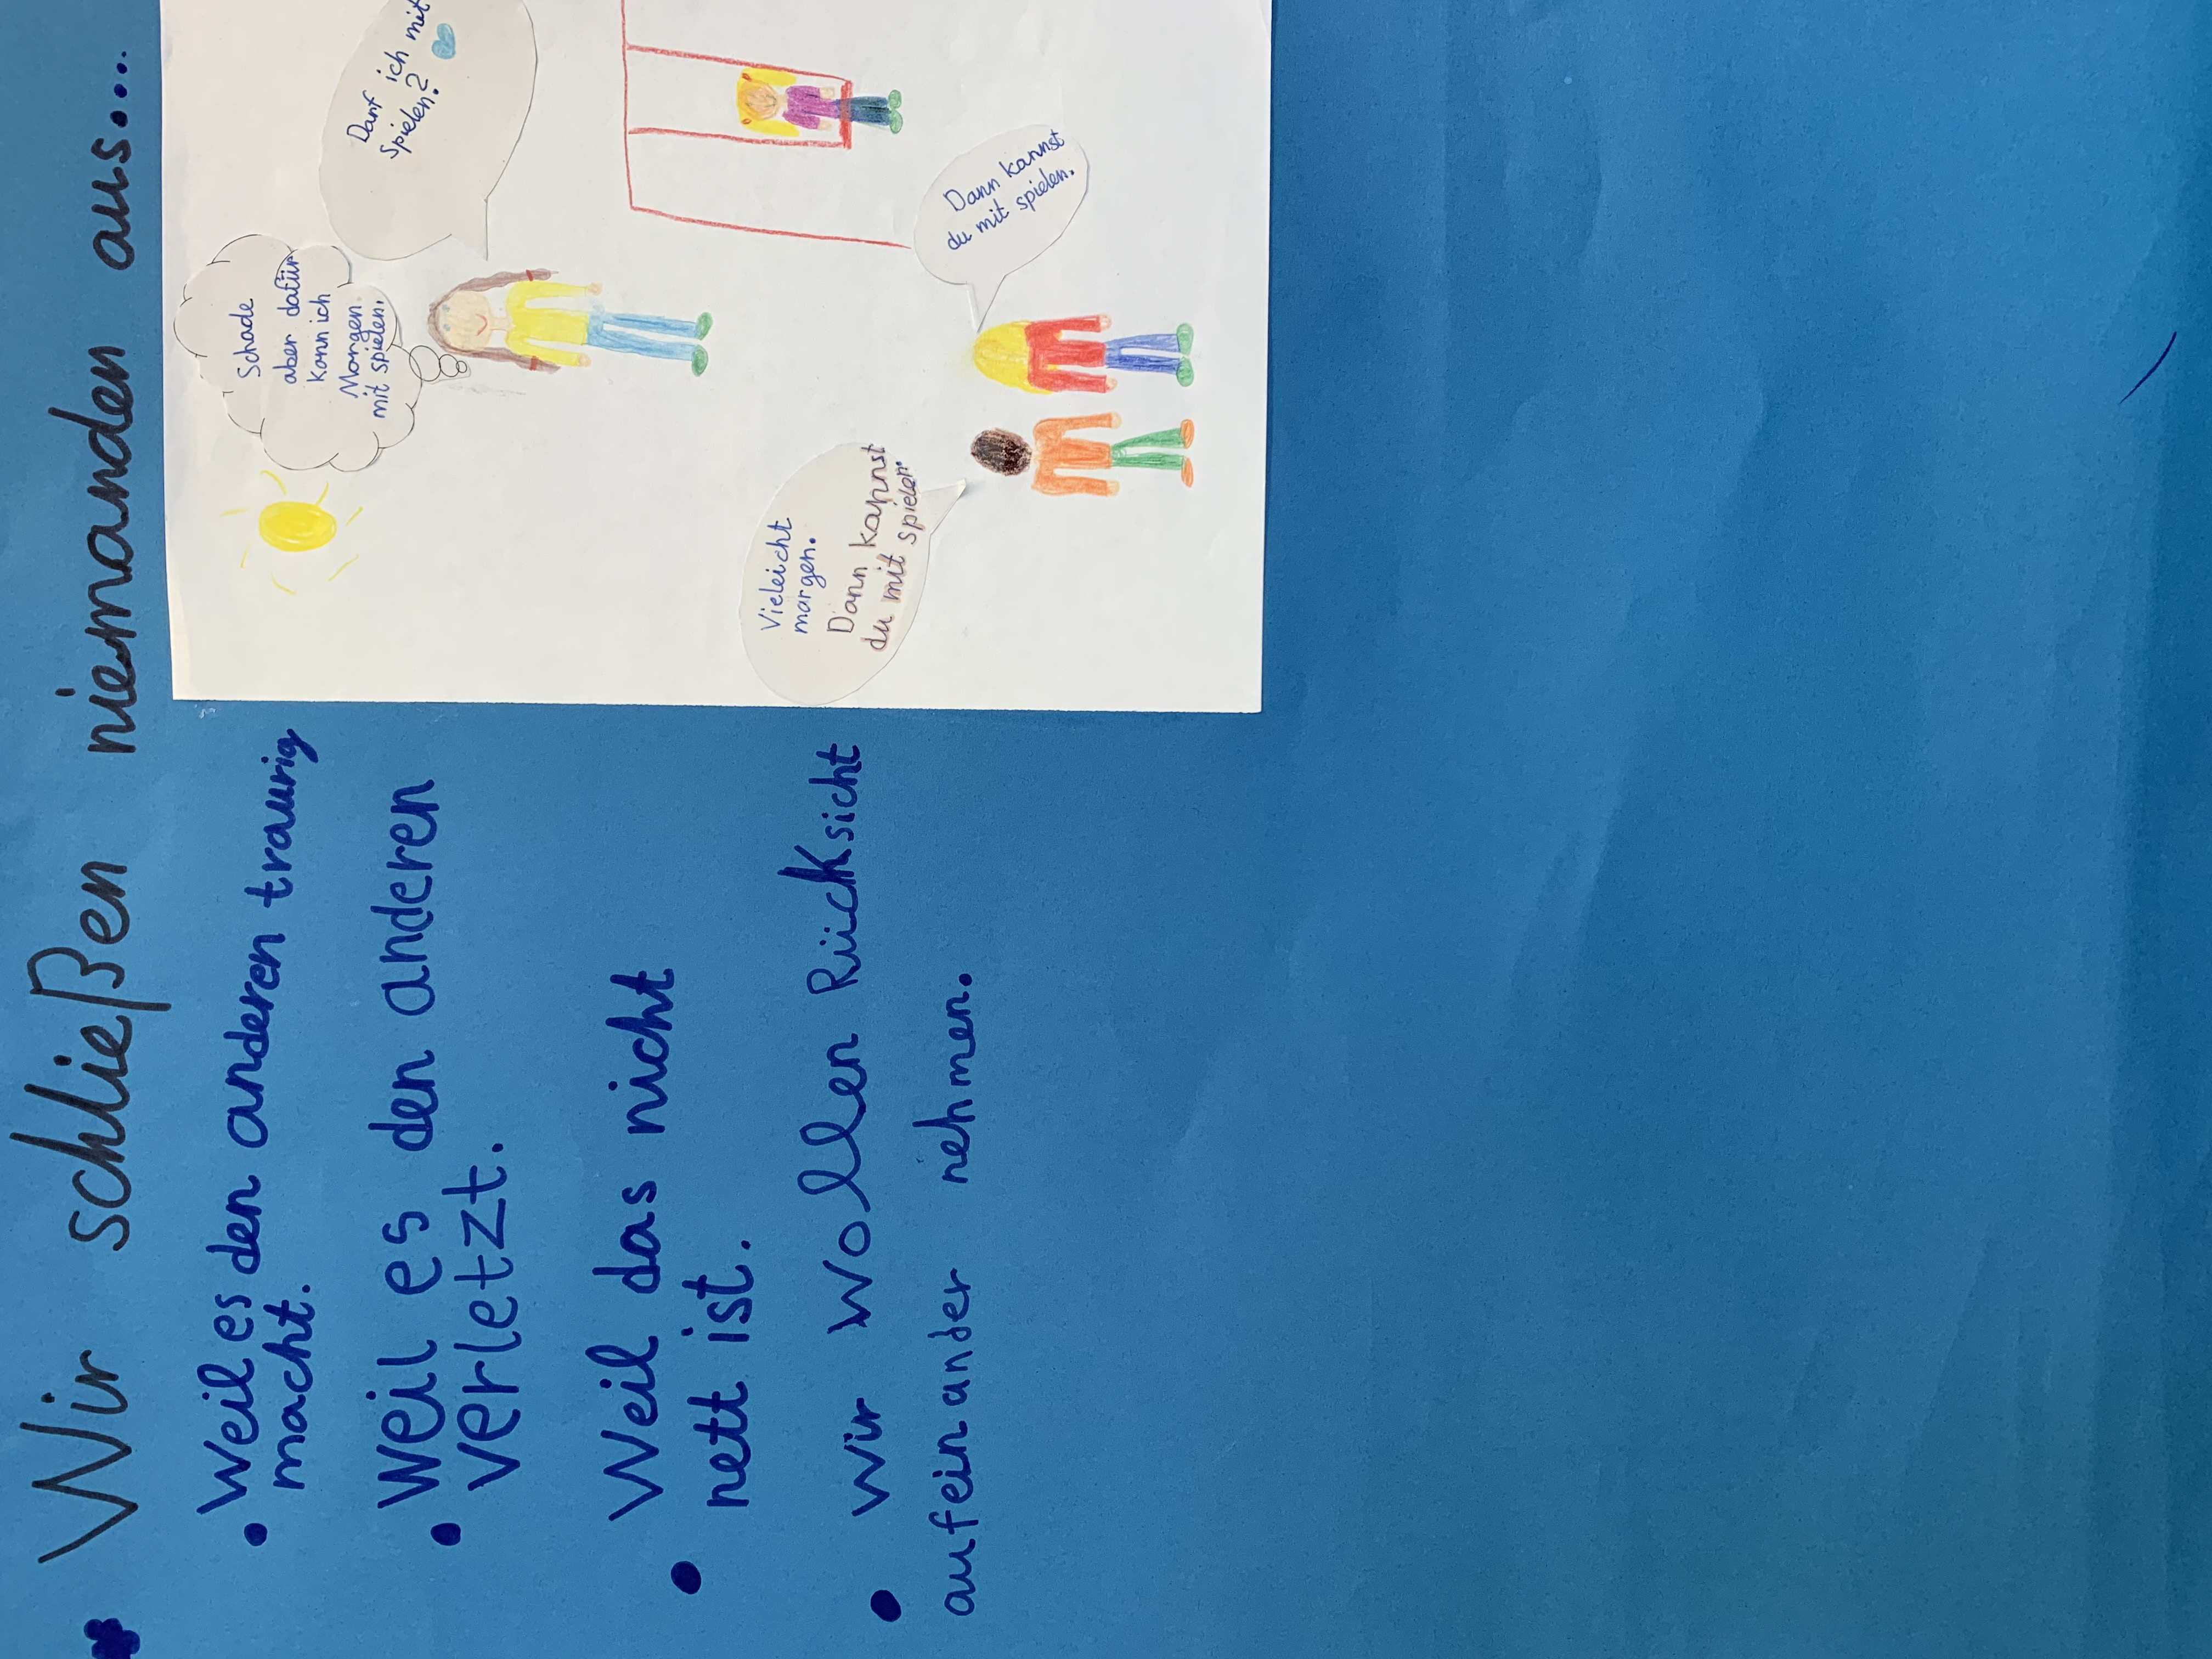 Wir schließen niemanden aus....
• Weil es den anderen traurig
macht.
• Weil es den anderen
verletzt.
• Weil das nicht
nett ist.
• Wir wollen Rücksicht
aufeinander nehmen.
Schade
aber dafür
kann ich
Morgen
mit spielen.
Darf ich mit
Spielen?
Vieleicht
margen.
Dann kannst
du mit spielen.
Dann kannst
du mit spielen.